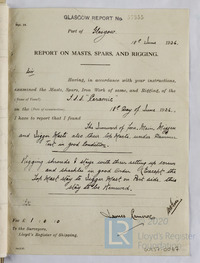 GLASGOW REPORT No
Port of Glasgow
18th June 1926
REPORT ON MASTS, SPARS, AND RIGGING.
Sir
Having, in accordance with your instructions,
examined the Masts, Spars, Iron Work of same, and Rigging, of the
on the
18th day of June 1926.
I have to report that I found
The Inward of fore, Main, Mizzen
and Jigger Masts also their Top Masts under Hammer
Test in good condition.
Rigging shrouds & stays with their setting up screws
and shackles in good order (Except the
Top Mast stay to Jigger Mast on Port side. This
stay to be Renewed.
James
To the Surveyors,
Lloyd's Register of Shipping.
© 2020
Lloyd's Register
Foundation